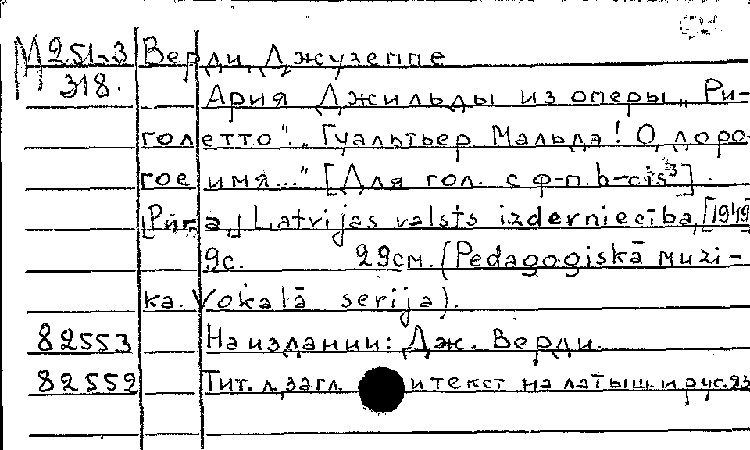 М 251-3 Верди, Джузеппе
318.
Ария Джильды из оперы „Ри-
голетто": „Гуальтьер Мальда! О, доро-
гое имя..." [Для гол. с ф-п. h-cis³].
[Рига,] Latvijas valsts izderniecība, [1949]
9с. 29см. (Pedagogiskā muzi-
ka. Vokalā serija).
82553 На издании: Дж. Верди.
82552 Тит. л., загл. и текст на латыш. и рус. яз